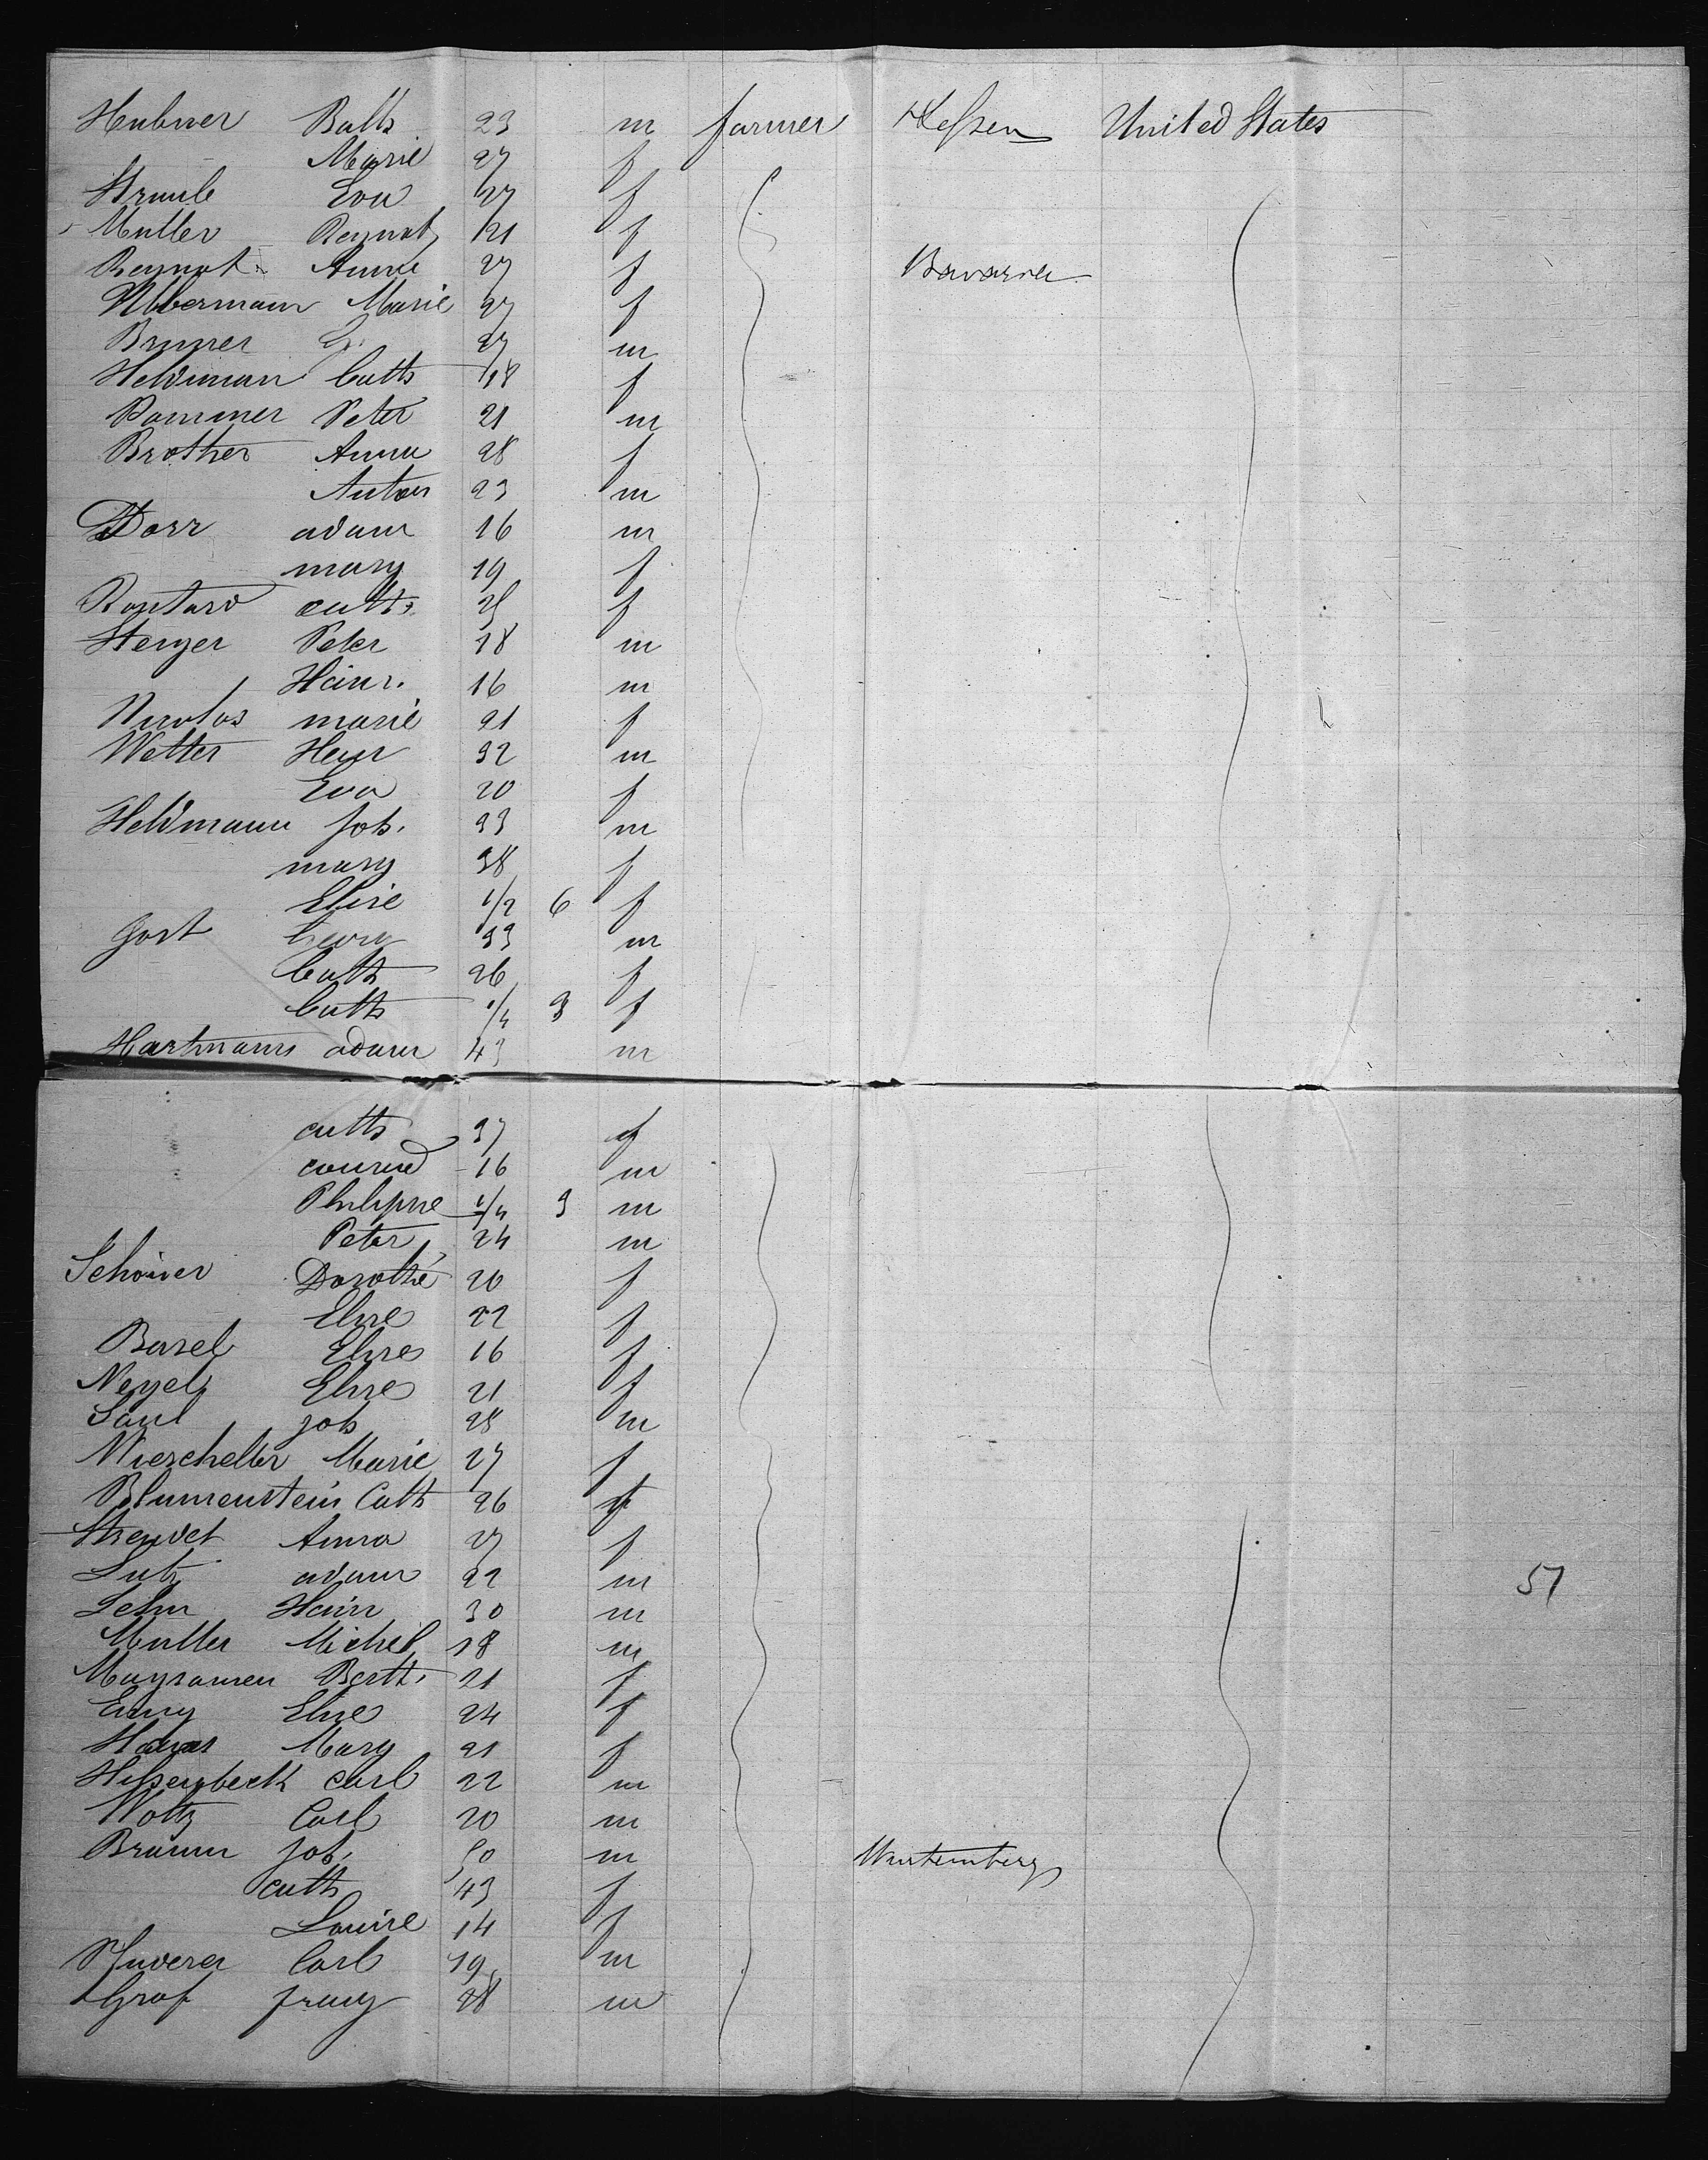 Hubner Balth 23 m farmer Hessen United States
Marie 27 f
Straub Eva 27 f
Muller 21 f
Anna 27 f Bavaria
Marie 27 f
Bruner 27 m
Heldman Cath 18 f
Pommer Peter 21 m
Brother Anna 28 f
Anton 23 m
Dorr adam 16 m
mary 19 f
cath. 25 f
Sterger Peter 18 m
Heinr. 16 m
Nicolas marie 21 f
Wetter Heinr 32 m
Eva 20 f
Heldmann Joh. 33 m
mary 38 f
Elise 1/2 6 f
Jost Georg 33 m
Cath 26 f
Cath 1/4 3 f
Hartmann adam 43 m
cath 37 f
conrad 16 m
Philippe 1/4 3 m
Peter 24 m
Dorothé 20 f
Elise 22 f
Basel Elise 16 f
Negel Elise 21 f
Saul joh 28 m
Marie 27 f
Blumenstein Cath 26 f
Anna 27 f
Lutz adam 22 m
Lehn Heinr 30 m
Muller Michel 18 m
Berth. 21 f
Emy Elise 24 f
Mary 21 f
carl 22 m
Woltz Carl 20 m
Braun joh. 50 m Wurtemberg
cath 43 f
Louise 14 f
Carl 19 m
Graf franz 28 m
51